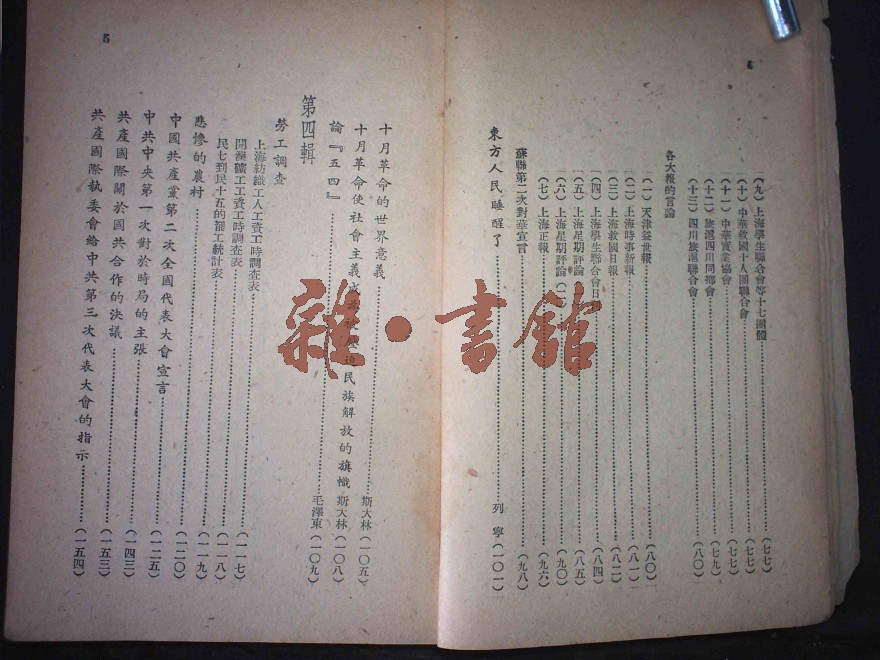 4
（九）上海學生聯合會等十七團體……（七七）
（十）中華救國十人團聯合會……（七七）
（十一）中華實業協會……（七七）
（十二）旅滬四川同鄉會……（七九）
（十三）四川旅滬聯合會……（八〇）
各大報的言論
（一）天津益世報……（八〇）
（二）上海時事新報……（八一）
（三）上海救國日報……（八二）
（四）上海學生聯合會日……（八四）
（五）上海星期評論……（八五）
（六）上海星期評論（二）……（九〇）
（七）上海正報……（九六）
蘇聯第二次對華宣言……（九八）
東方人民睡醒了……列寧（一〇一）
雜·書館
5
十月革命的世界意義……斯大林（一〇五）
十月革命使社會主義成民族解放的旗幟 斯大林（一〇八）
論『五四』……毛澤東（一〇九）
第四輯
勞工調查
上海紡織工人工資工時調查表……（一一七）
開灤礦工工資工時調查表……（一一七）
民七到民十五的罷工統計表……（一一八）
悲慘的農村……（一一九）
中國共產黨第二次全國代表大會宣言……（一二〇）
中共中央第一次對於時局的主張……（一二五）
共產國際關於國共合作的決議……（一四三）
共產國際執委會給中共第三次代表大會的指示……（一五三）
（一五四）